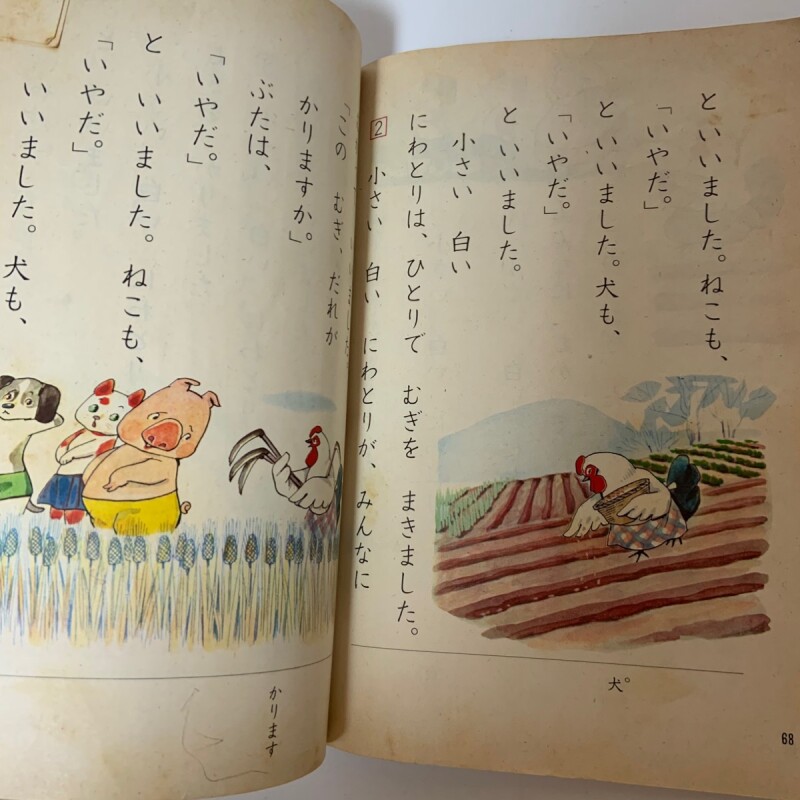 といいました。ねこも、
「いやだ。」
といいました。犬も、
「いやだ。」
といいました。
小さい 白い
にわとりは、ひとりで むぎを まきました。
2 小さい 白い にわとりが、みんなに
犬。
68
「この むぎ、だれが
かりますか。」
ぶたは、
「いやだ。」
と いいました。ねこも、
「いやだ。」
いいました。犬も、
かります